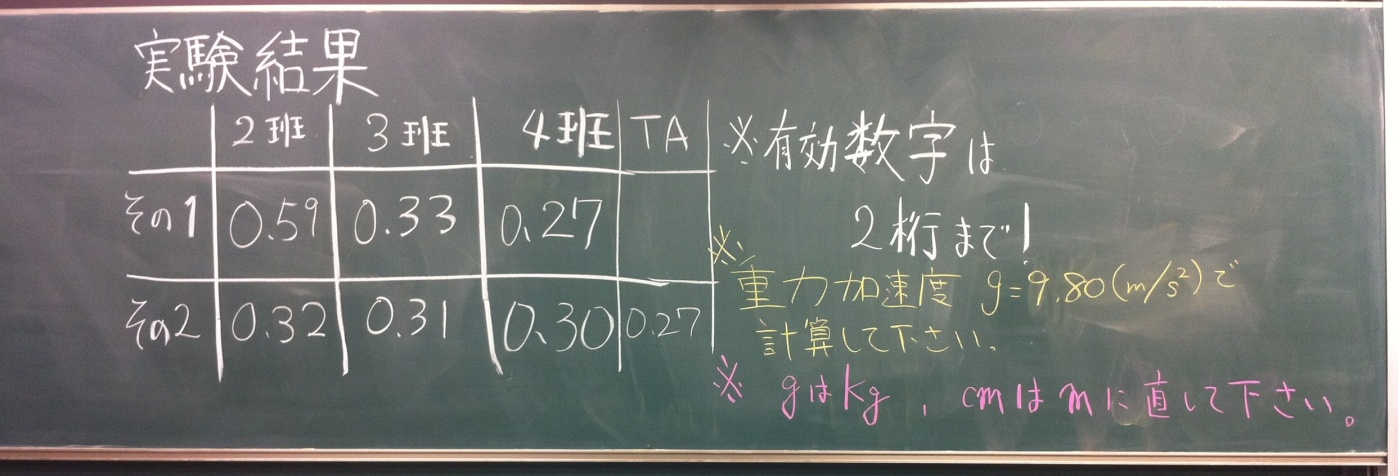 実験結果
2班 3班 4班 TA
その1 0.59 0.33 0.27
その2 0.32 0.31 0.30 0.27
※有効数字は
2桁まで!
※重力加速度 g=9.80(m/s²)で
計算して下さい。
※ gはkg, cmはmに直して下さい。